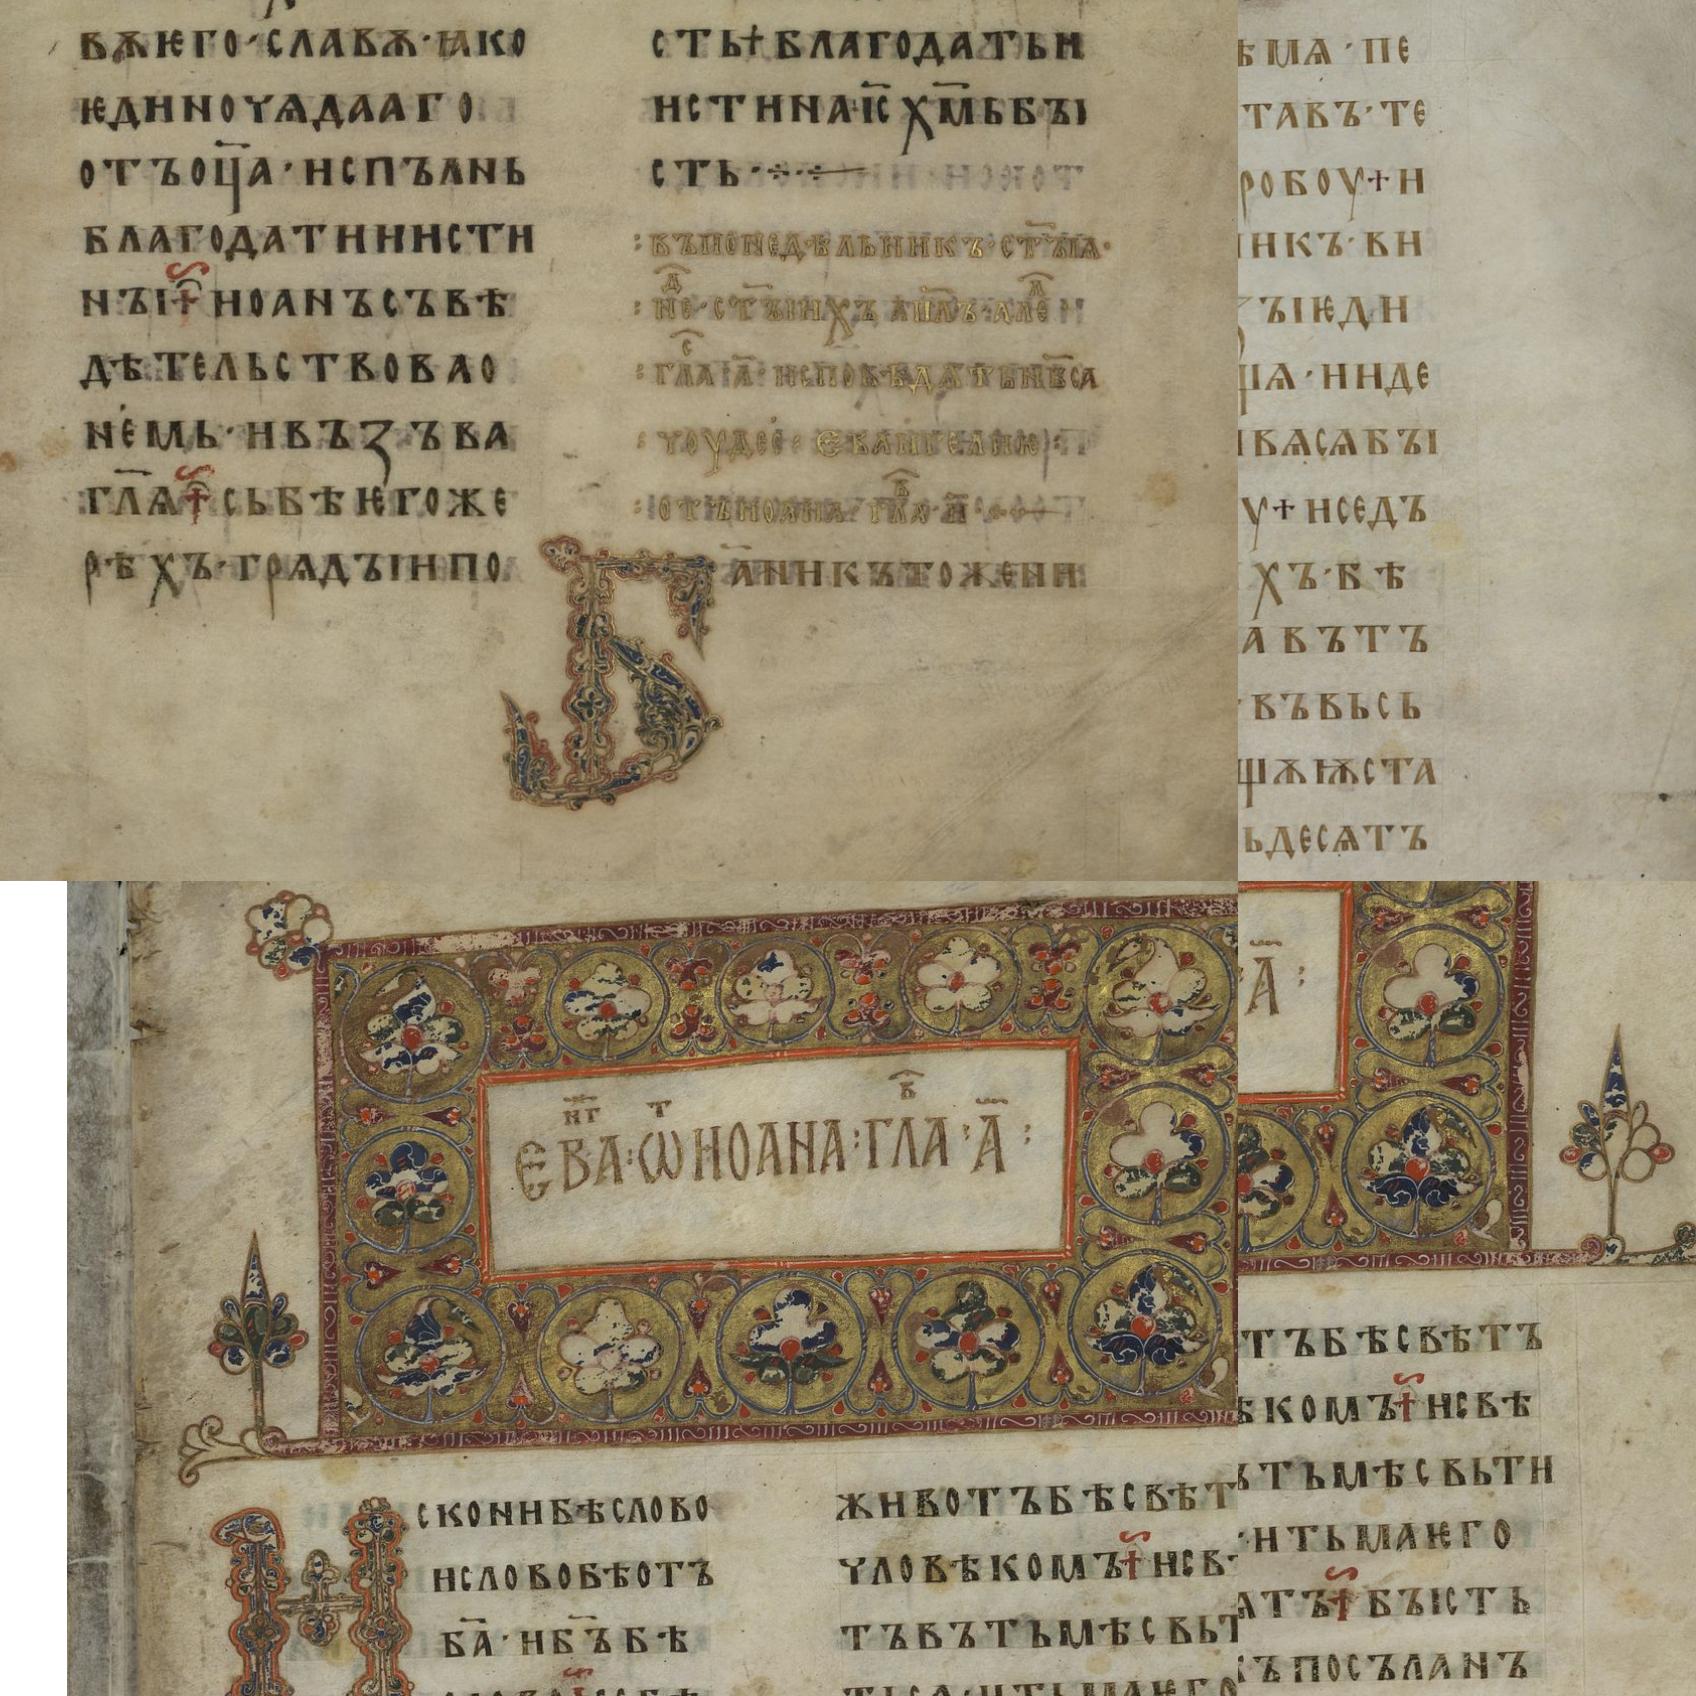 вѫѥго·славѫ·ꙗко
ѥдиночѧдааго
отъоц҃а·испълнь
благодатииисти
нꙑ† иоанъсъвѣ
дѣтельствовао
немь·ивъзъва
гл҃ѧ† сьбѣѥгоже
рѣхъ·грѧдꙑипо
сть†благодатьи
истина·іс҃ х҃мьбꙑ
сть·
въпонедѣльникъ·ст҃ꙑѧ·
не·ст҃ꙑихъ ап҃лъ·але
гла·а҃·исповѣдѧтьнб҃са
чоудеса еваньгелиѥ
отъиоана·гла·а҃
Ба҃ никътожени
ѣмѧ·пе
тавъ·те
робоу†и
икъ·ви
ꙁꙑѥди
щѧ·ииде
ивѧсѧбꙑ
у†иседъ
хъ·бѣ
авътъ
·въвьсь
щѫѭста
ьдесѧтъ
ева:ѿиоана:гла·а҃:
а҃:
ИскониБѣслово
ислововѣотъ
ба҃·иб҃ъбѣ
животъбѣсвѣт
чловѣкомъ† исв
тъвътьмѣсвьт
тъбѣсвѣтъ
ѣкомъ† исвѣ
ътьмѣсвьти
·итьмаѥго
атъ† бꙑсть
къпосъланъ